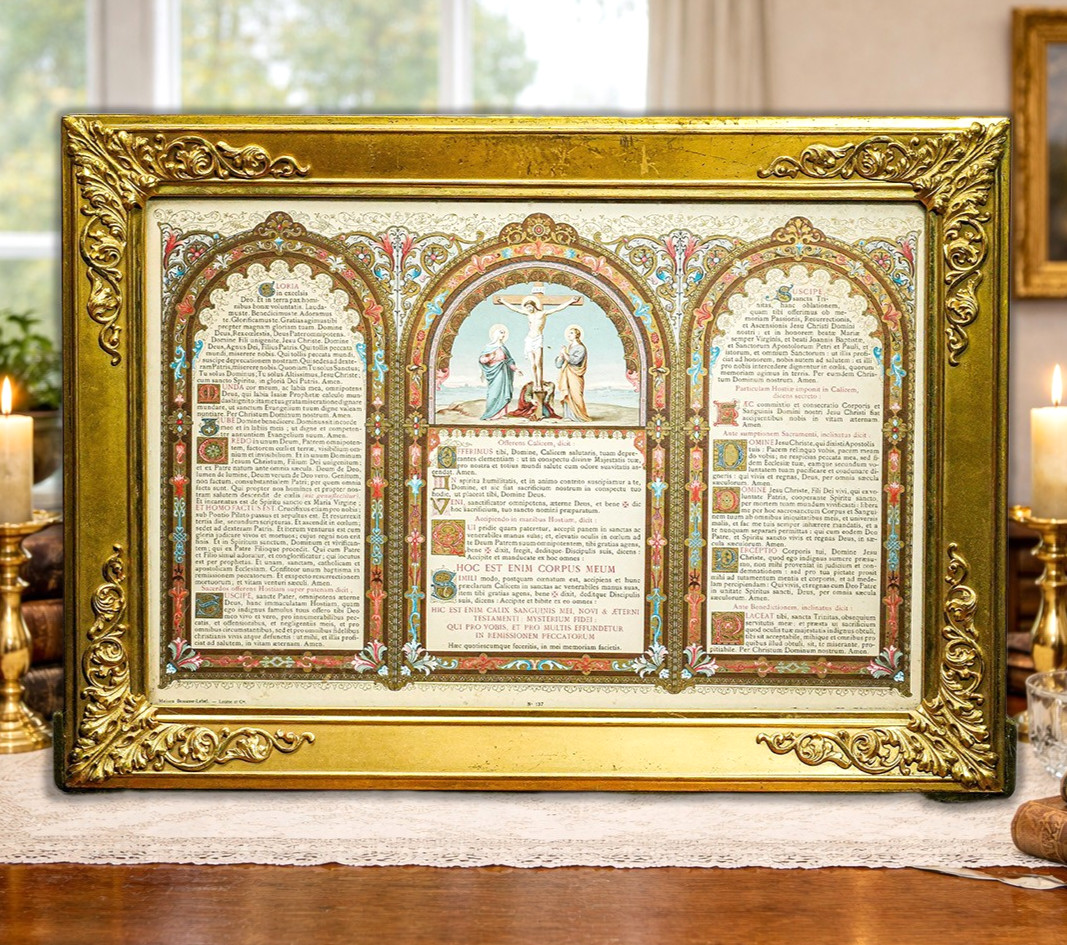 GLORIA
in excelsis
Deo. Et in terra pax homi-
nibus bonæ voluntatis. Lauda-
mus te. Benedicimus te. Adoramus
te. Glorificamus te. Gratias agimus tibi
propter magnam gloriam tuam. Domine
Deus, Rex cœlestis, Deus Pater omnipotens.
Domine Fili unigenite, Jesu Christe. Domine
Deus, Agnus Dei, Filius Patris. Qui tollis peccata
mundi, miserere nobis. Qui tollis peccata mundi,
suscipe deprecationem nostram. Qui sedes ad dexte-
ram Patris, miserere nobis. Quoniam Tu solus Sanctus;
Tu solus Dominus; Tu solus Altissimus, Jesu Christe,
cum sancto Spiritu, in gloria Dei Patris. Amen.
MUNDA cor meum, ac labia mea, omnipotens
Deus, qui labia Isaiæ Prophetæ calculo mun-
dasti ignito: ita me tua grata miseratione dignare
mundare, ut sanctum Evangelium tuum digne valeam
nuntiare. Per Christum Dominum nostrum. Amen.
JUBE Domine benedicere. Dominus sit in corde
meo et in labiis meis; ut digne et competen-
ter annuntiem Evangelium suum. Amen.
CREDO in unum Deum, Patrem omnipoten-
tem, factorem cœli et terræ, visibilium om-
nium et invisibilium. Et in unum Dominum
Jesum Christum, Filium Dei unigenitum;
et ex Patre natum ante omnia sæcula. Deum de Deo,
lumen de lumine, Deum verum de Deo vero. Genitum,
non factum, consubstantialem Patri; per quem omnia
facta sunt. Qui propter nos homines et propter nos-
tram salutem descendit de cœlis
Et incarnatus est de Spiritu sancto ex Maria Virgine;
ET HOMO FACTUS EST. Crucifixus etiam pro nobis;
sub Pontio Pilato passus et sepultus est. Et resurrexit
tertia die, secundum scripturas. Et ascendit in cœlum;
sedet ad dexteram Patris. Et iterum venturus est cum
gloria judicare vivos et mortuos; cujus regni non erit
finis. Et in Spiritum sanctum, Dominum et vivifican-
tem; qui ex Patre Filioque procedit. Qui cum Patre
et Filio simul adoratur, et conglorificatur; qui locutus
est per prophetas. Et unam, sanctam, catholicam et
apostolicam Ecclesiam. Confiteor unum baptisma in
remissionem peccatorum. Et expecto resurrectionem
mortuorum; et vitam venturi sæculi. Amen.
Sacerdos offerens Hostiam super patenam dicit,
SUSCIPE, sancte Pater, omnipotens æterne
Deus, hanc immaculatam Hostiam, quam
ego indignus famulus tuus offero tibi Deo
meo vivo et vero, pro innumerabilibus pec-
catis, et offensionibus, et negligentiis meis, et pro
omnibus circumstantibus, sed et pro omnibus fidelibus
christianis vivis atque defunctis: ut mihi, et illis profi-
ciat ad salutem, in vitam æternam. Amen.
Offerens Calicem, dicit :
OFFERIMUS tibi, Domine, Calicem salutaris, tuam depre-
cantes clementiam : ut in conspectu divinæ Majestatis tuæ,
pro nostra et totius mundi salute cum odore suavitatis as-
cendat. Amen.
IN spiritu humilitatis, et in animo contrito suscipiamur a te,
Domine, et sic fiat sacrificium nostrum in conspectu tuo
hodie, ut placeat tibi, Domine Deus.
VENI, sanctificator omnipotens, æterne Deus, et bene ✠ dic
hoc sacrificium, tuo sancto nomini præparatum.
Accipiendo in manibus Hostiam, dicit :
QUI pridie quam pateretur, accepit panem in sanctas ac
venerabiles manus suas; et, elevatis oculis in cœlum ad
te Deum Patrem suum omnipotentem, tibi gratias agens,
bene ✠ dixit, fregit, deditque Discipulis suis, dicens :
Accipite et manducate ex hoc omnes :
HOC EST ENIM CORPUS MEUM
SIMILI modo, postquam cœnatum est, accipiens et hunc
præclarum Calicem in sanctas ac venerabiles manus suas,
item tibi gratias agens, bene ✠ dixit, deditque Discipulis
suis, dicens : Accipite et bibite ex eo omnes :
HIC EST ENIM CALIX SANGUINIS MEI, NOVI & ÆTERNI
TESTAMENTI : MYSTERIUM FIDEI :
QUI PRO VOBIS, ET PRO MULTIS EFFUNDETUR
IN REMISSIONEM PECCATORUM
Hæc quotiescumque feceritis, in mei memoriam facietis.
SUSCIPE,
Sancta Tri-
nitas, hanc oblationem,
quam tibi offerimus ob me-
moriam Passionis, Resurrectionis,
et Ascensionis Jesu Christi Domini
nostri : et in honorem beatæ Mariæ
semper Virginis, et beati Joannis Baptistæ,
et Sanctorum Apostolorum Petri et Pauli, et
istorum, et omnium Sanctorum : ut illis profi-
ciat ad honorem, nobis autem ad salutem : et illi
pro nobis intercedere dignentur in cœlis, quorum
memoriam agimus in terris. Per eumdem Chris-
tum Dominum nostrum. Amen.
Particulam Hostiæ imponit in Calicem,
dicens secreto :
HÆC commixtio et consecratio Corporis et
Sanguinis Domini nostri Jesu Christi fiat
accipientibus nobis in vitam æternam.
Amen.
Ante sumptionem Sacramenti, inclinatus dicit :
DOMINE Jesu Christe, qui dixisti Apostolis
tuis : Pacem relinquo vobis, pacem meam
do vobis; ne respicias peccata mea, sed fi-
dem Ecclesiæ tuæ, eamque secundum vo-
luntatem tuam pacificare et coadunare di-
gneris : qui vivis et regnas, Deus, per omnia sæcula
sæculorum. Amen.
DOMINE Jesu Christe, Fili Dei vivi, qui ex vo-
luntate Patris, cooperante Spiritu sancto,
per mortem tuam mundum vivificasti : libera
me per hoc sacrosanctum Corpus et Sangui-
nem tuum ab omnibus iniquitatibus meis, et universis
malis, et fac me tuis semper inhærere mandatis, et a
te nunquam separari permittas : qui cum eodem Deo
Patre, et Spiritu sancto vivis et regnas Deus, in sæ-
cula sæculorum. Amen.
PERCEPTIO Corporis tui, Domine Jesu
Christe, quod ego indignus sumere præsu-
mo, non mihi proveniat in judicium et con-
demnationem : sed pro tua pietate prosit
mihi ad tutamentum mentis et corporis, et ad mede-
lam percipiendam : Qui vivis, et regnas cum Deo Patre
in unitate Spiritus sancti, Deus, per omnia sæcula
sæculorum. Amen.
Ante Benedictionem, inclinatus dicit :
PLACEAT tibi, sancta Trinitas, obsequium
servitutis meæ; et præsta ut sacrificium
quod oculis tuæ majestatis indignus obtuli,
tibi sit acceptabile, mihique et omnibus pro
quibus illud obtuli, sit, te miserante, pro-
pitiabile. Per Christum Dominum nostrum. Amen.
Maison Bouasse-Lebel. — Lecène et Cie.
Nº 137